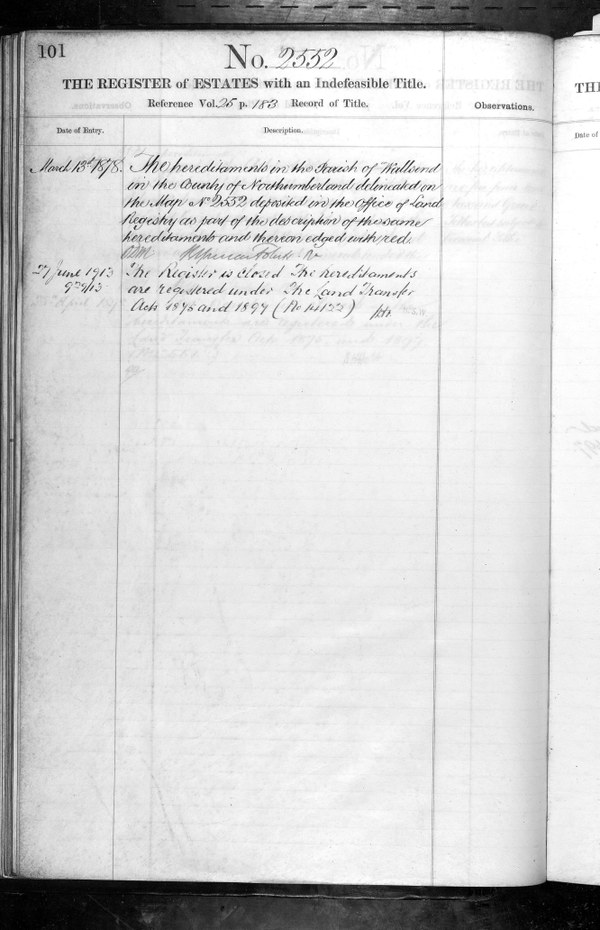 101
No. 2552
THE REGISTER of ESTATES with an Indefeasible Title.
Reference Vol. 25 p. 183 Record of Title.
Observations.
Date of Entry.
Description.
March 13th 1878.
The hereditaments in the Parish of Wallsend
in the County of Northumberland delineated on
the Map No 2552 deposited in the Office of Land
Registry as part of the description of the same
hereditaments and thereon edged with red.
27 June 1913
The Register is closed The hereditaments
are registered under The Land Transfer
Acts 1875 and 1897 (No 14122)
TH
Date of